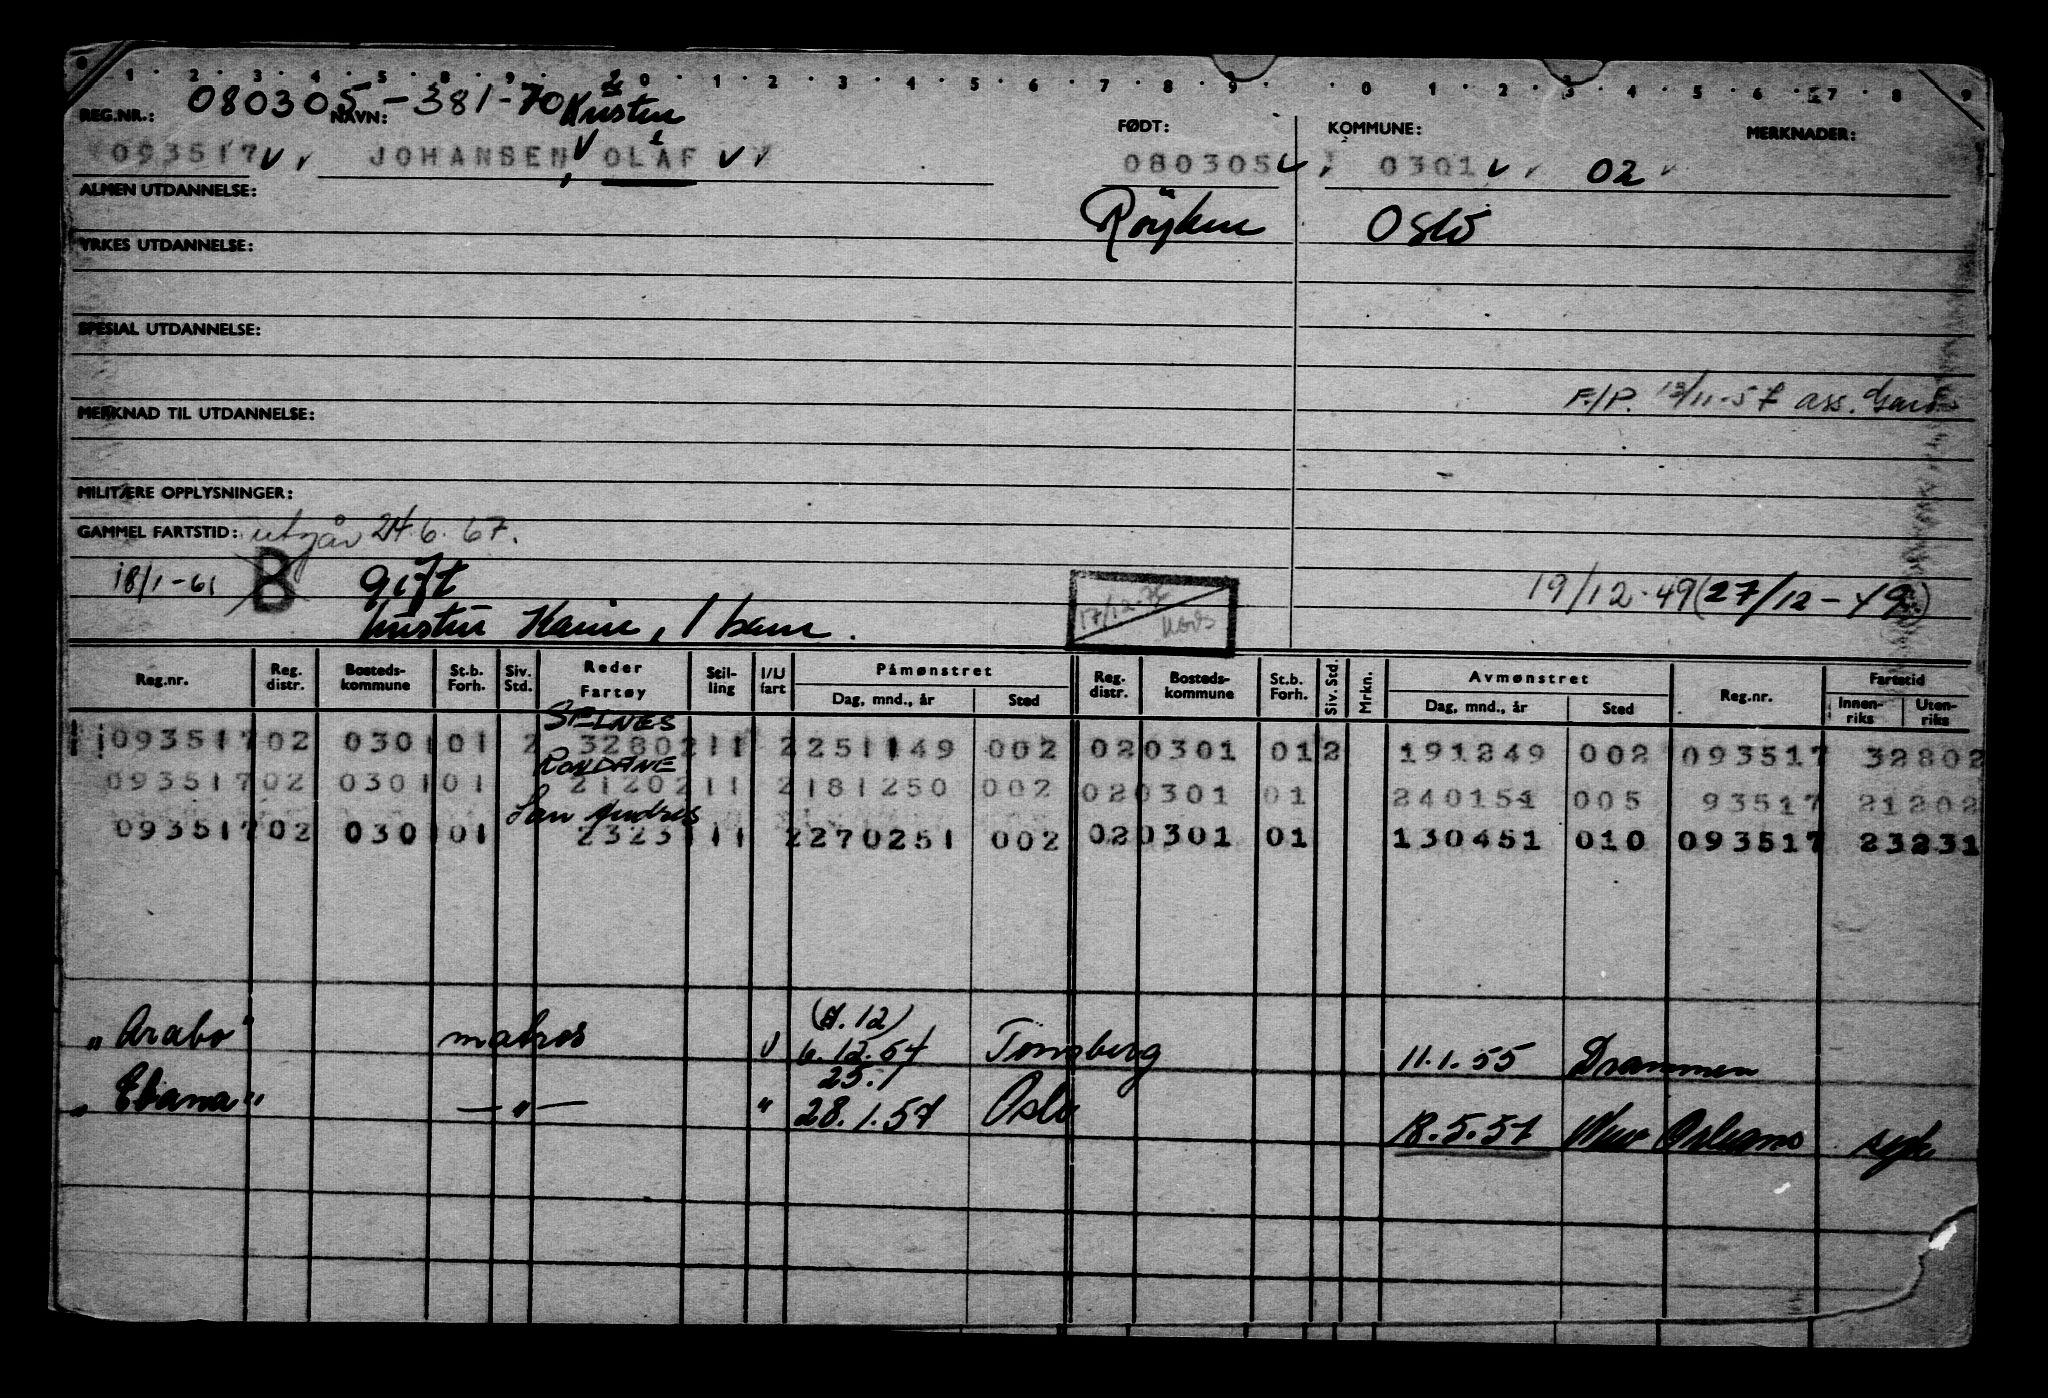 0 1 2 3 4 5 8 9 0 1 2 3 4 5 6 7 8 9 0 1 2 3 4 5 6 7 8 9
REG.NR.: 080305-381-70 NAVN: 2 Kristen FØDT: KOMMUNE: MERKNADER:
093517 JOHANSEN, OLAF 1 080305 0301 02
ALMEN UTDANNELSE: Röyken Oslo
YRKES UTDANNELSE:
SPESIAL UTDANNELSE:
F./P. 13/11-57 ass.
MERKNAD TIL UTDANNELSE:
MILITÆRE OPPLYSNINGER:
GAMMEL FARTSTID: utgår 24.6.67.
18/1-61 B gift 19/12.49 (27/12-49)
1 barn. 17/12-76
Reg.nr. Reg. distr. Bosteds-kommune St.b. Forh. Siv. Std. Reder Fartøy Stil-ling I/U fart Påmønstret Dag, mnd., år Sted Reg. distr. Bosteds-kommune St.b. Forh. Siv. Std. Mrkn. Avmønstret Dag, mnd., år Sted Reg.nr. Fartstid Innen-riks Uten-riks
SPINES
093517 02 0301 01 2 32802 11 2 251149 002 02 0301 01 2 191249 002 093517 32802
RONDANE
093517 02 0301 01 21202 11 2 181250 002 02 0301 01 240151 005 93517 21202
San Andres
093517 02 0301 01 2323 11 2 270251 002 02 0301 01 130451 010 093517 23231
(d. 12)
"Arabo" matros U 6.12.54 Tønsberg 11.1.55 Drammen
25.1
"Ebana" — " — " 28.1.57 Oslo 18.5.57 New Orleans syk